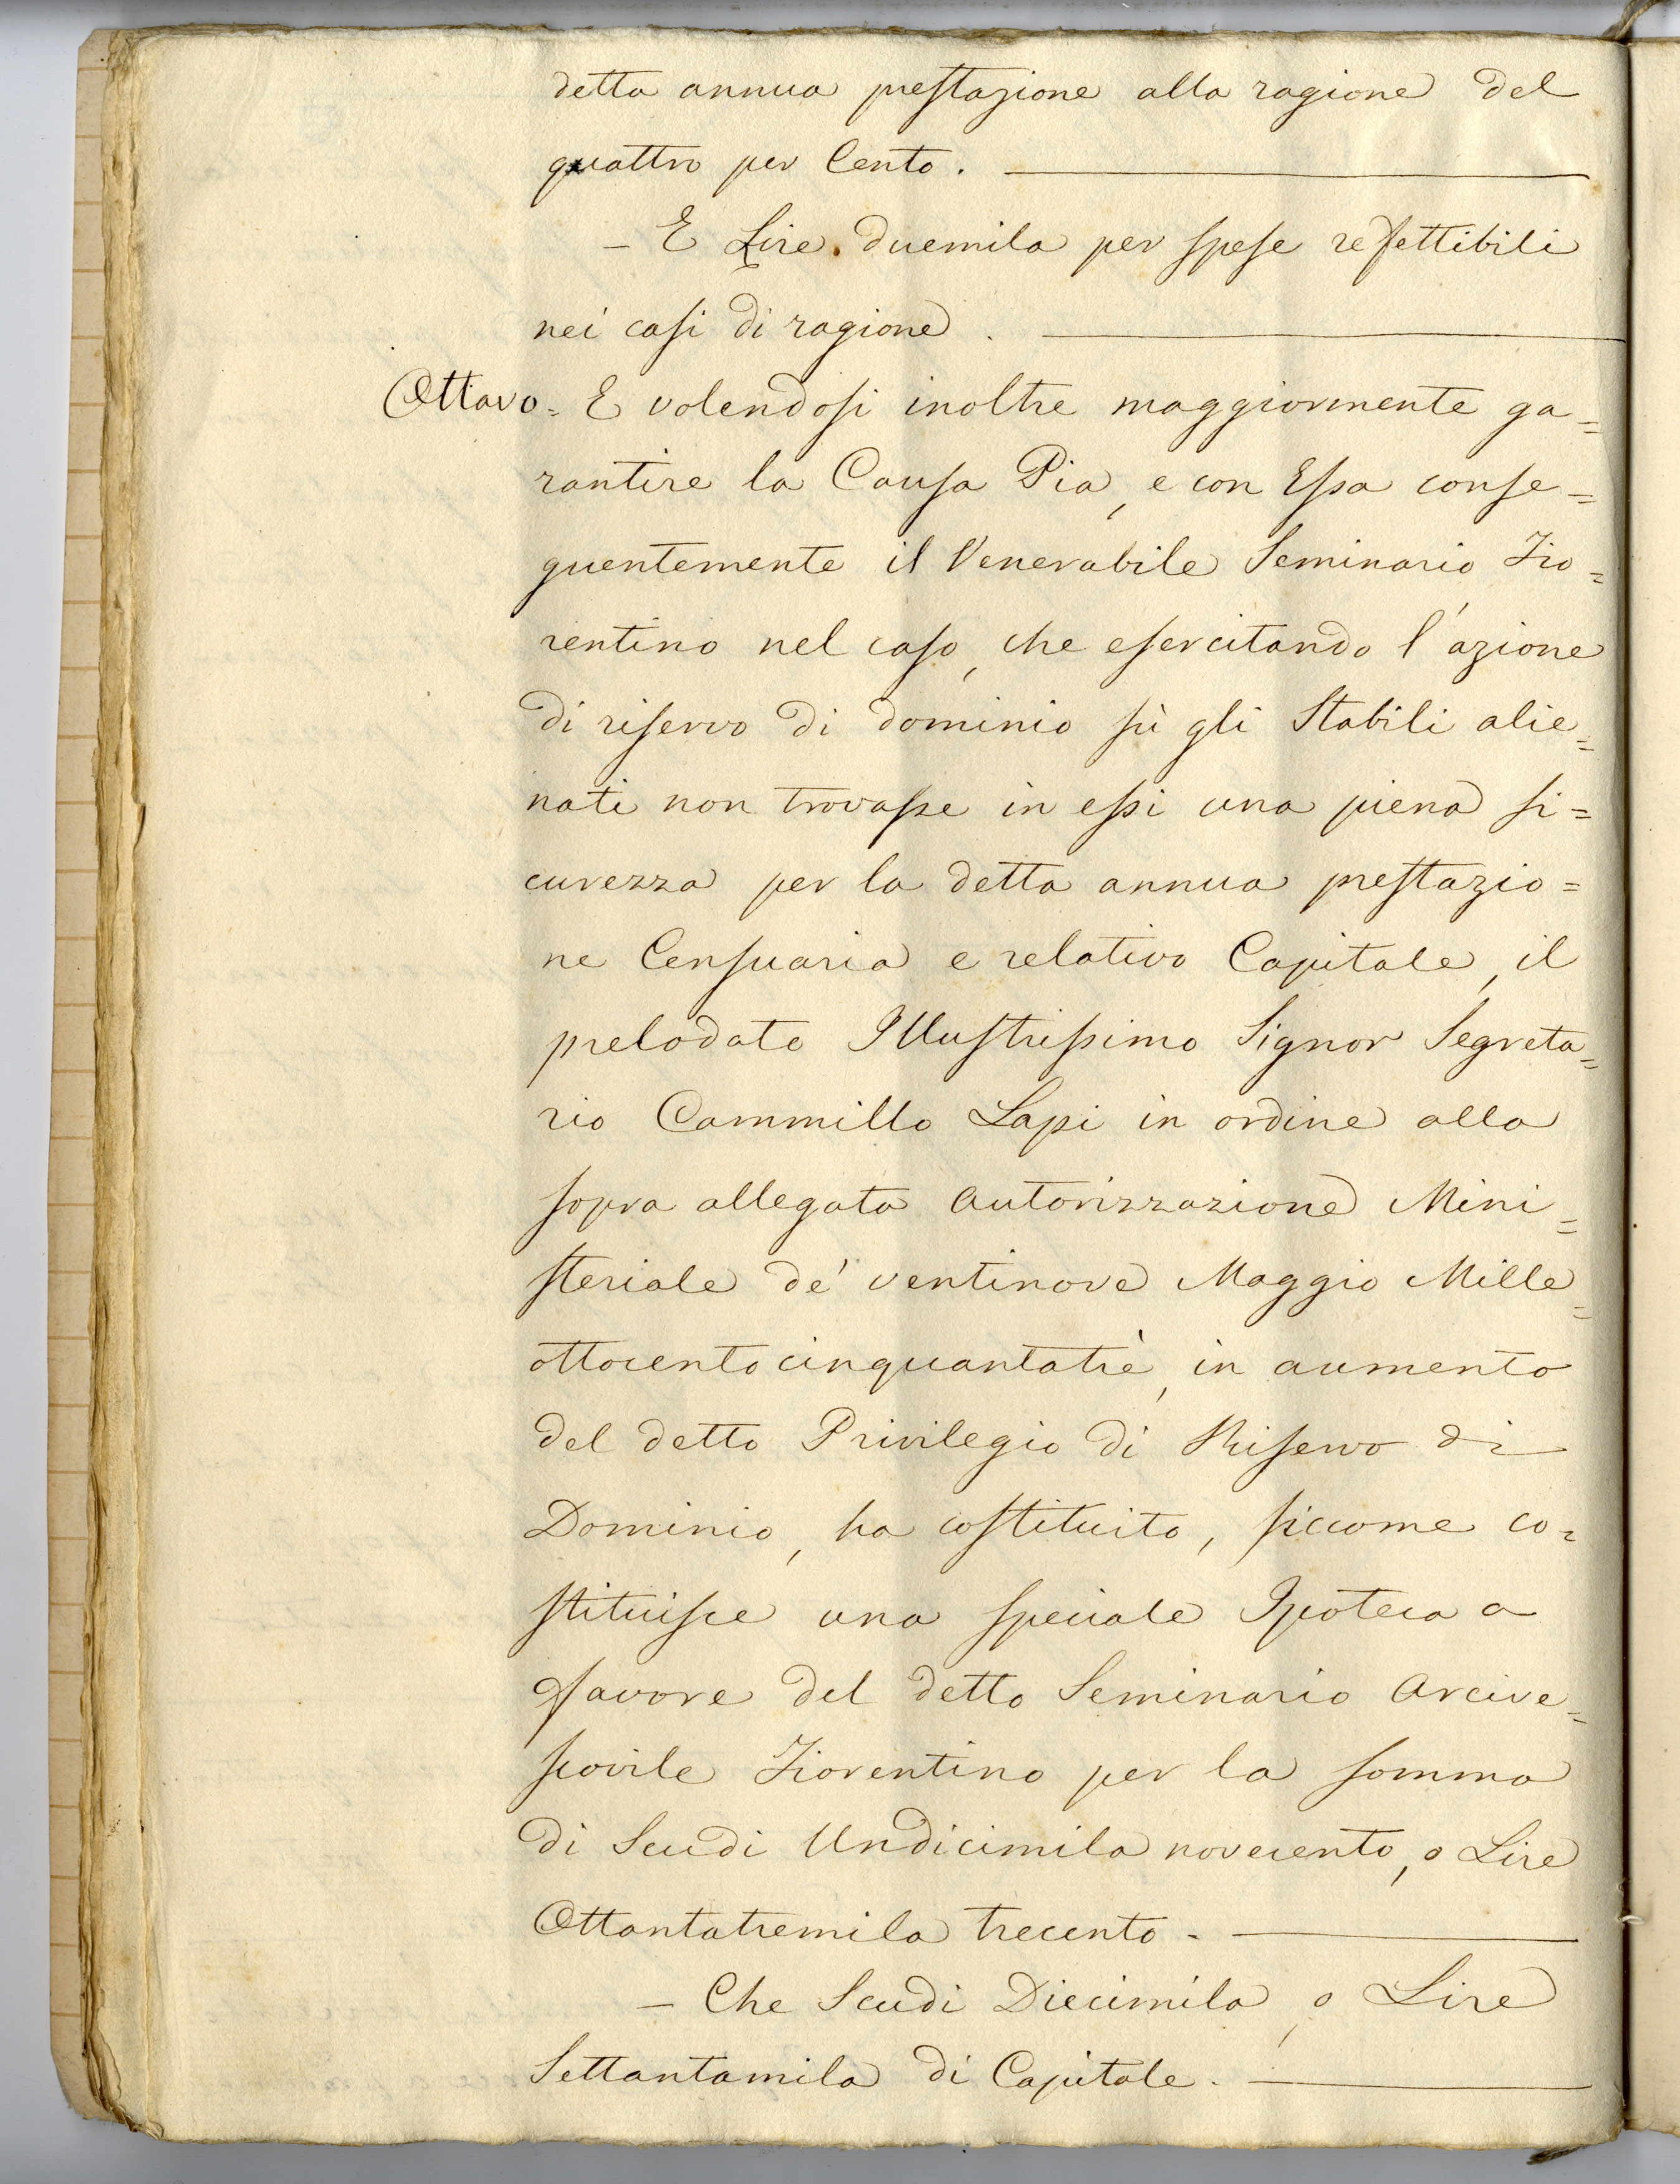 detta annua prestazione alla ragione del
quattro per Cento. ———
– E Lire duemila per spese refettibili
nei casi di ragione . ———
Ottavo = E volendosi inoltre maggiormente ga=
rantire la Causa Pia, e con Essa conse=
guentemente il Venerabile Seminario Fio=
rentino nel caso, che esercitando l'azione
di riservo di dominio sù gli Stabili alie=
nati non trovasse in essi una piena si=
curezza per la detta annua prestazio=
ne Censuaria e relativo Capitale, il
prelodato Illustrissimo Signor Segreta=
rio Cammillo Lapi in ordine alla
sopra allegata Autorizzazione Mini=
steriale de' ventinove Maggio Mille=
ottocentocinquantatrè, in aumento
del detto Privilegio di Riservo di
Dominio, ha costituito, siccome co=
stituisce una speciale Ipoteca a
favore del detto Seminario Arcive=
scovile Fiorentino per la somma
di Scudi Undicimila novecento, o Lire
Ottantatremila trecento. ———
– Che Scudi Diecimila, o Lire
Settantamila di Capitale. ———